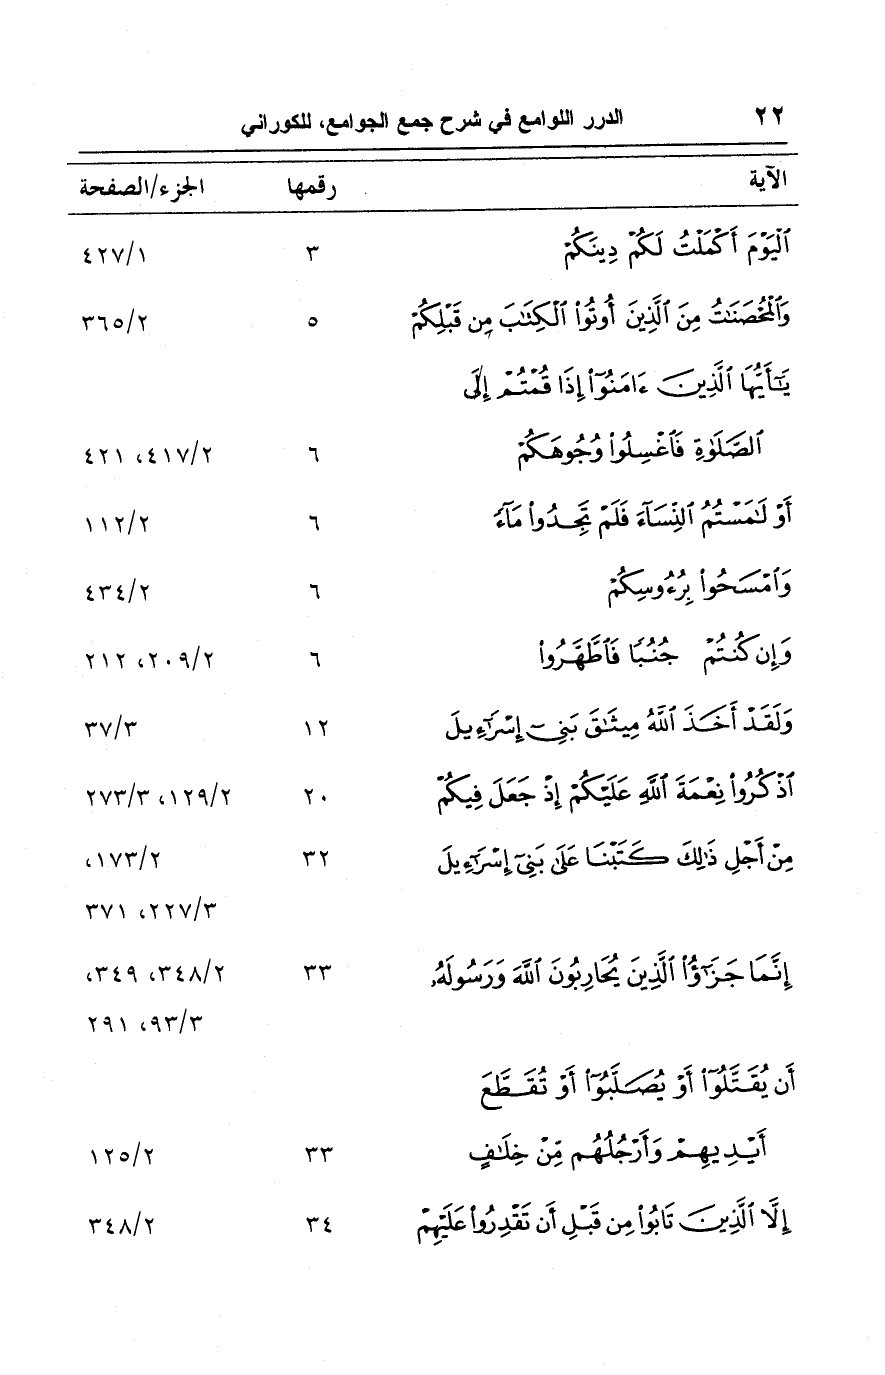 ٢٢ الدرر اللوامع في شرح جمع الجوامع، للكوراني
الآية رقمها الجزء/الصفحة
ٱلْيَوْمَ أَكْمَلْتُ لَكُمْ دِينَكُمْ ٣ ٤٢٧/١
وَٱلْمُحْصَنَٰتُ مِنَ ٱلَّذِينَ أُوتُوا۟ ٱلْكِتَٰبَ مِن قَبْلِكُمْ ٥ ٣٦٥/٢
يَٰٓأَيُّهَا ٱلَّذِينَ ءَامَنُوٓا۟ إِذَا قُمْتُمْ إِلَى
ٱلصَّلَوٰةِ فَٱغْسِلُوا۟ وُجُوهَكُمْ ٦ ٤١٧/٢، ٤٢١
أَوْ لَٰمَسْتُمُ ٱلنِّسَآءَ فَلَمْ تَجِدُوا۟ مَآءً ٦ ١١٢/٢
وَٱمْسَحُوا۟ بِرُءُوسِكُمْ ٦ ٤٣٤/٢
وَإِن كُنتُمْ جُنُبًا فَٱطَّهَّرُوا۟ ٦ ٢٠٩/٢، ٢١٢
وَلَقَدْ أَخَذَ ٱللَّهُ مِيثَٰقَ بَنِىٓ إِسْرَٰٓءِيلَ ١٢ ٣٧/٣
ٱذْكُرُوا۟ نِعْمَةَ ٱللَّهِ عَلَيْكُمْ إِذْ جَعَلَ فِيكُمْ ٢٠ ١٢٩/٢، ٢٧٣/٣
مِنْ أَجْلِ ذَٰلِكَ كَتَبْنَا عَلَىٰ بَنِىٓ إِسْرَٰٓءِيلَ ٣٢ ١٧٣/٢،
٢٢٧/٣، ٣٧١
إِنَّمَا جَزَٰٓؤُا۟ ٱلَّذِينَ يُحَارِبُونَ ٱللَّهَ وَرَسُولَهُۥ ٣٣ ٣٤٨/٢، ٣٤٩،
٩٣/٣، ٢٩١
أَن يُقَتَّلُوٓا۟ أَوْ يُصَلَّبُوٓا۟ أَوْ تُقَطَّعَ
أَيْدِيهِمْ وَأَرْجُلُهُم مِّنْ خِلَٰفٍ ٣٣ ١٢٥/٢
إِلَّا ٱلَّذِينَ تَابُوا۟ مِن قَبْلِ أَن تَقْدِرُوا۟ عَلَيْهِمْ ٣٤ ٣٤٨/٢